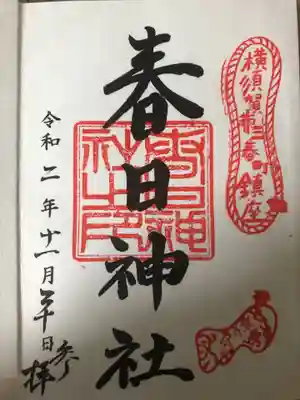 横須賀市三春町鎮座
春日神社
春日神
社之印
令和二年十一月二十日参拝